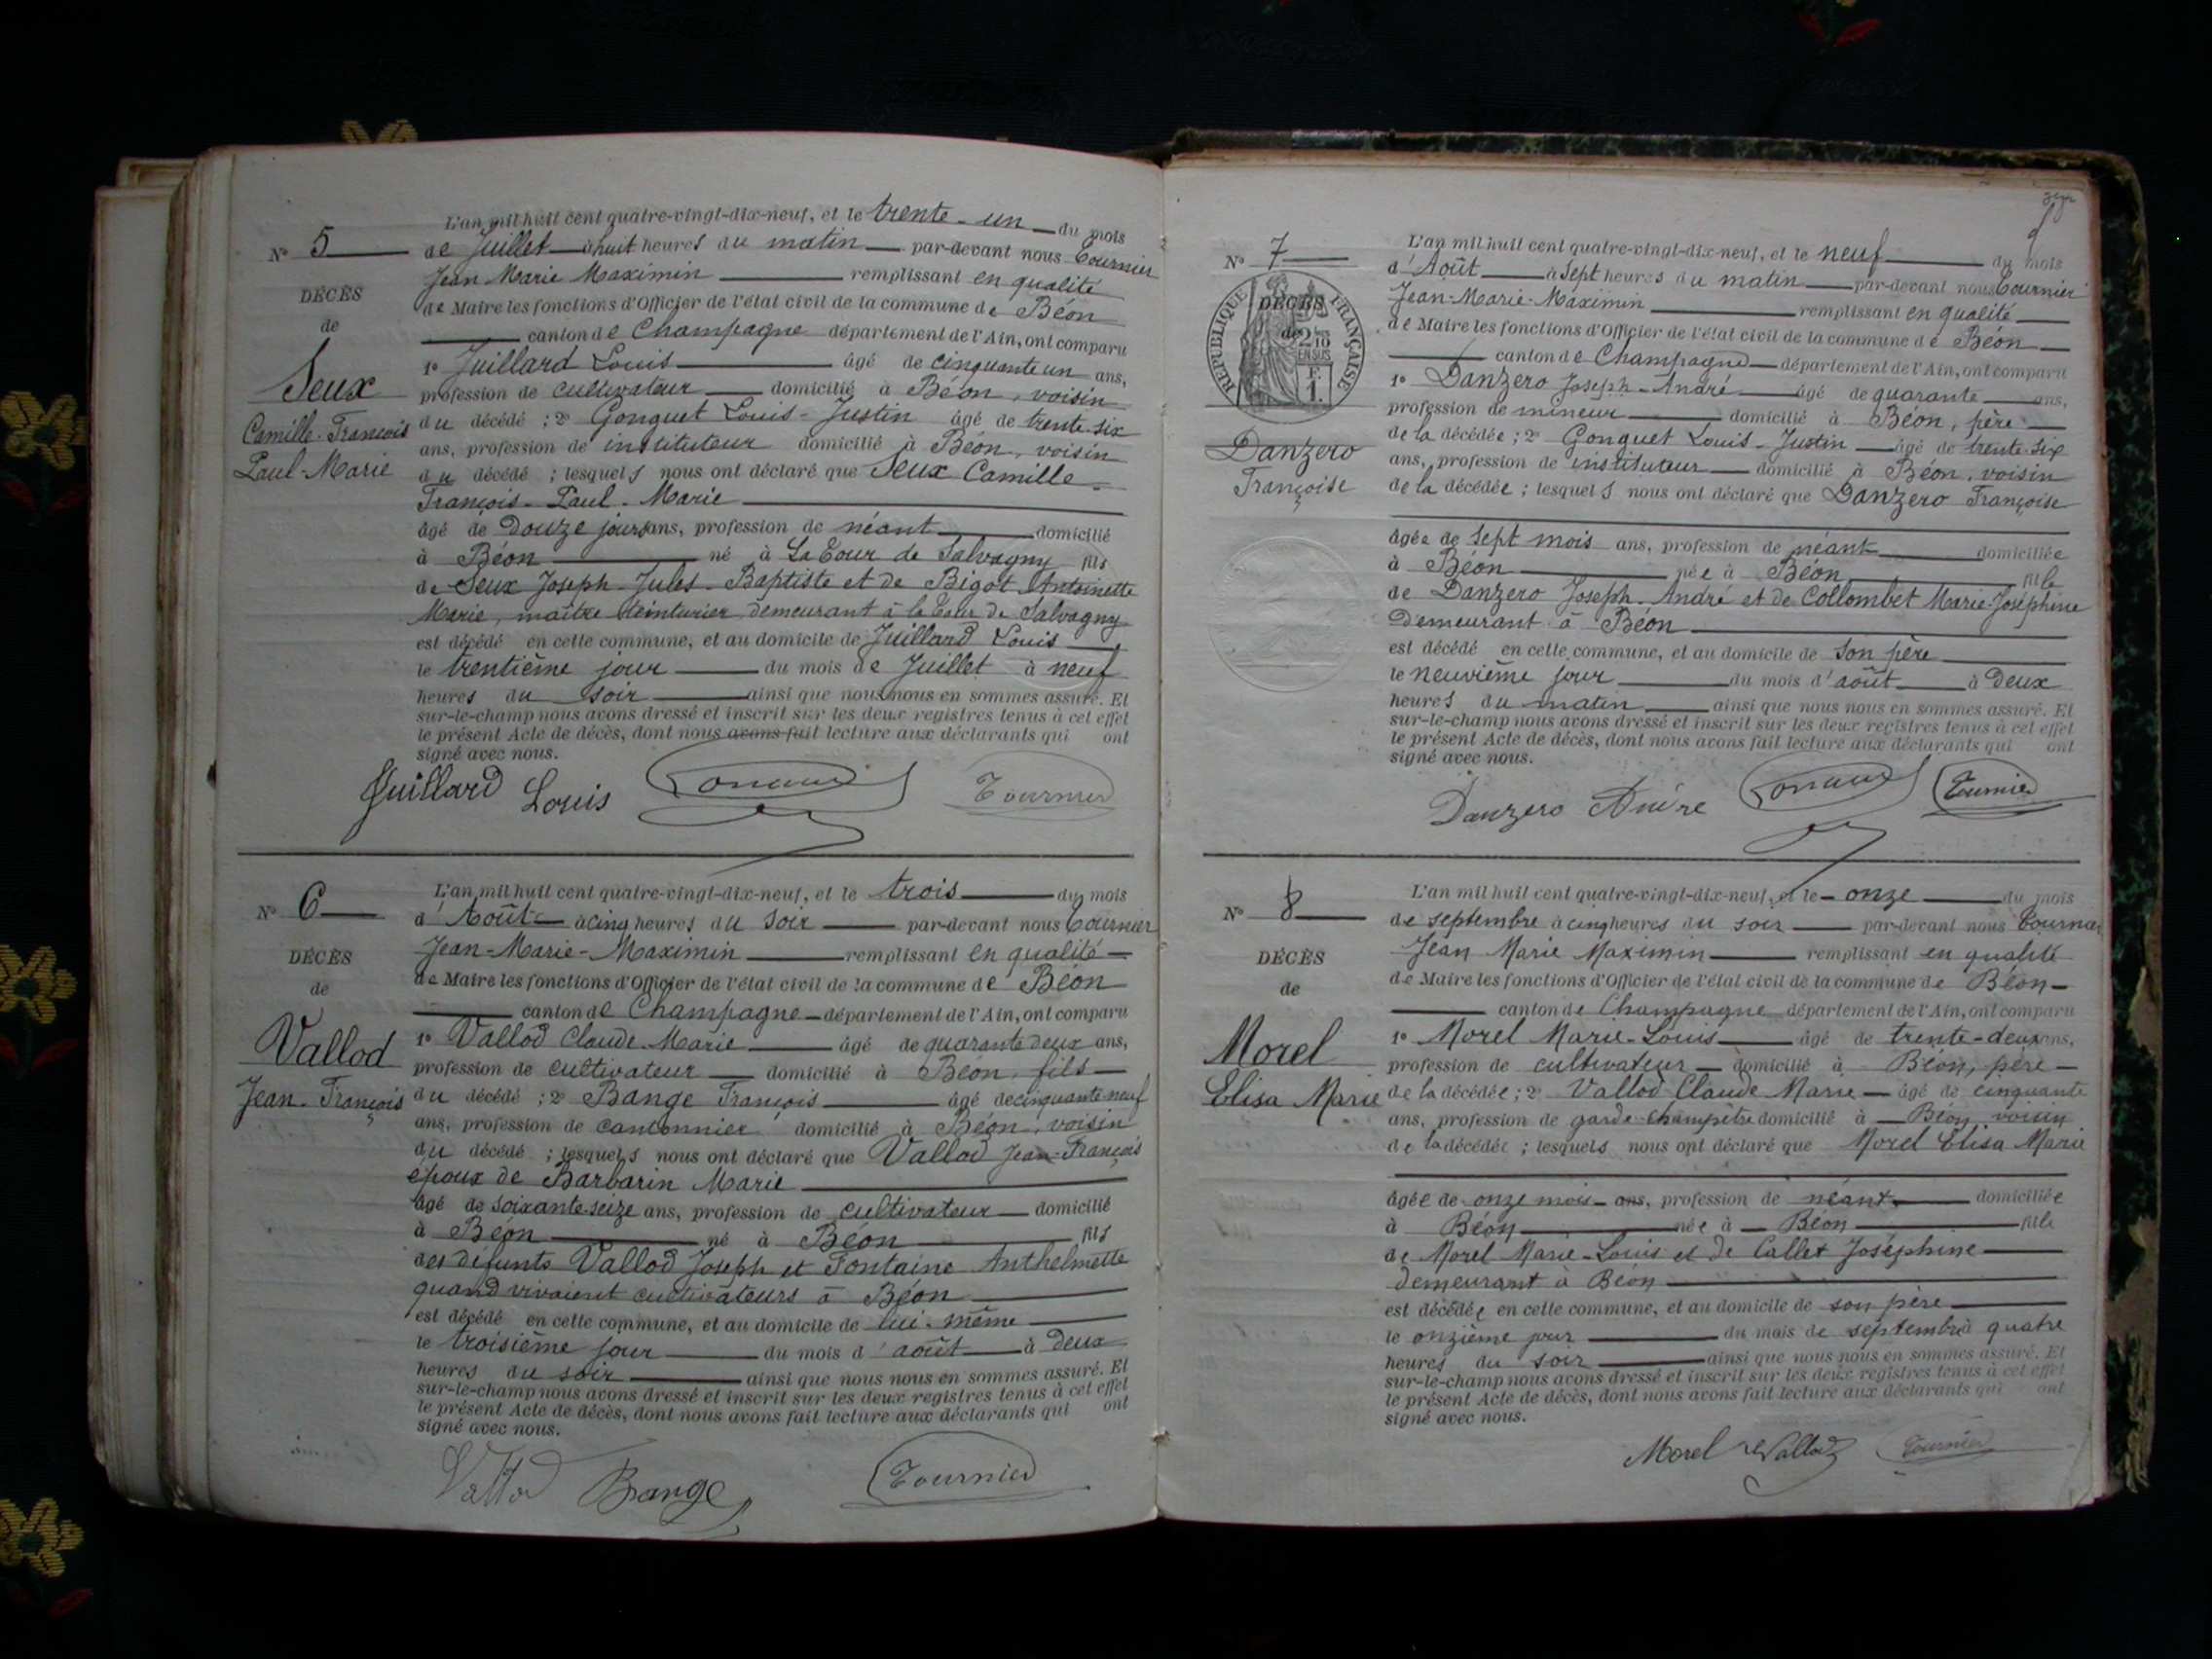 L'an mil huit cent quatre-vingt-dix-neuf, et le trente-un du mois
N° 5
de Juillet à huit heures du matin par-devant nous Tournier
Jean Marie Maximin remplissant en qualité
DÉCÈS
de Maire les fonctions d'Officier de l'état civil de la commune de Béon
de
canton de Champagne département de l'Ain, ont comparu
1° Juillard Louis âgé de cinquante un ans,
Seux
profession de cultivateur domicilié à Béon, voisin
Camille-François
du décédé ; 2° Gonguet Louis-Justin âgé de trente-six
ans, profession de instituteur domicilié à Béon, voisin
Paul-Marie
du décédé ; lesquels nous ont déclaré que Seux Camille-
François-Paul-Marie
âgé de douze jours ans, profession de néant domicilié
à Béon né à La Tour de Salvagny fils
de Seux Joseph-Jules-Baptiste et de Bigot Antoinette
Marie, maître teinturier demeurant à la Tour de Salvagny
est décédé en cette commune, et au domicile de Juillard Louis
le trentième jour du mois de Juillet à neuf
heures du soir ainsi que nous nous en sommes assuré. Et
sur-le-champ nous avons dressé et inscrit sur les deux registres tenus à cet effet
le présent Acte de décès, dont nous avons fait lecture aux déclarants qui ont
signé avec nous.
Juillard Louis Tournier
L'an mil huit cent quatre-vingt-dix-neuf, et le trois du mois
N° 6
d'Août à cinq heures du soir par-devant nous Tournier
Jean-Marie-Maximin remplissant en qualité
DÉCÈS
de Maire les fonctions d'Officier de l'état civil de la commune de Béon
de
canton de Champagne département de l'Ain, ont comparu
1° Vallod Claude-Marie âgé de quarante deux ans,
Vallod
profession de cultivateur domicilié à Béon, fils
Jean-François
du décédé ; 2° Bange François âgé de cinquante neuf
ans, profession de cantonnier domicilié à Béon, voisin
du décédé ; lesquels nous ont déclaré que Vallod Jean-François
époux de Barbarin Marie
âgé de soixante seize ans, profession de cultivateur domicilié
à Béon né à Béon fils
des défunts Vallod Joseph et Fontaine Anthelmette
quand vivaient cultivateurs à Béon
est décédé en cette commune, et au domicile de lui-même
le troisième jour du mois d'août à deux
heures du soir ainsi que nous nous en sommes assuré. Et
sur-le-champ nous avons dressé et inscrit sur les deux registres tenus à cet effet
le présent Acte de décès, dont nous avons fait lecture aux déclarants qui ont
signé avec nous.
Vallod Bange Tournier
L'an mil huit cent quatre-vingt-dix-neuf, et le neuf du mois
N° 7
d'Août à sept heures du matin par-devant nous Tournier
Jean-Marie-Maximin remplissant en qualité
DÉCÈS
de
RÉPUBLIQUE FRANÇAISE
2/10
EN SUS
F.
1.
de Maire les fonctions d'Officier de l'état civil de la commune de Béon
canton de Champagne département de l'Ain, ont comparu
1° Danzero Joseph-André âgé de quarante ans,
profession de mineur domicilié à Béon, père
Danzero
de la décédée ; 2° Gonguet Louis-Justin âgé de trente-six
ans, profession de instituteur domicilié à Béon, voisin
Françoise
de la décédée ; lesquels nous ont déclaré que Danzero Françoise
âgée de sept mois ans, profession de néant domiciliée
à Béon née à Béon fille
de Danzero Joseph-André et de Collombet Marie-Joséphine
demeurant à Béon
est décédé en cette commune, et au domicile de son père
le neuvième jour du mois d'août à deux
heures du matin ainsi que nous nous en sommes assuré. Et
sur-le-champ nous avons dressé et inscrit sur les deux registres tenus à cet effet
le présent Acte de décès, dont nous avons fait lecture aux déclarants qui ont
signé avec nous.
Danzero André Tournier
L'an mil huit cent quatre-vingt-dix-neuf, et le onze du mois
N° 8
de septembre à cinq heures du soir par-devant nous Tournier
Jean Marie Maximin remplissant en qualité
DÉCÈS
de Maire les fonctions d'Officier de l'état civil de la commune de Béon
de
canton de Champagne département de l'Ain, ont comparu
1° Morel Marie-Louis âgé de trente-deux ans,
Morel
profession de cultivateur domicilié à Béon, père
Elisa Marie
de la décédée ; 2° Vallod Claude Marie âgé de cinquante
ans, profession de garde-champêtre domicilié à Béon voisin
de la décédée ; lesquels nous ont déclaré que Morel Elisa Marie
âgée de onze mois ans, profession de néant domiciliée
à Béon née à Béon fille
de Morel Marie-Louis et de Callet Joséphine
demeurant à Béon
est décédée en cette commune, et au domicile de son père
le onzième jour du mois de septembre à quatre
heures du soir ainsi que nous nous en sommes assuré. Et
sur-le-champ nous avons dressé et inscrit sur les deux registres tenus à cet effet
le présent Acte de décès, dont nous avons fait lecture aux déclarants qui ont
signé avec nous.
Morel Vallod Tournier